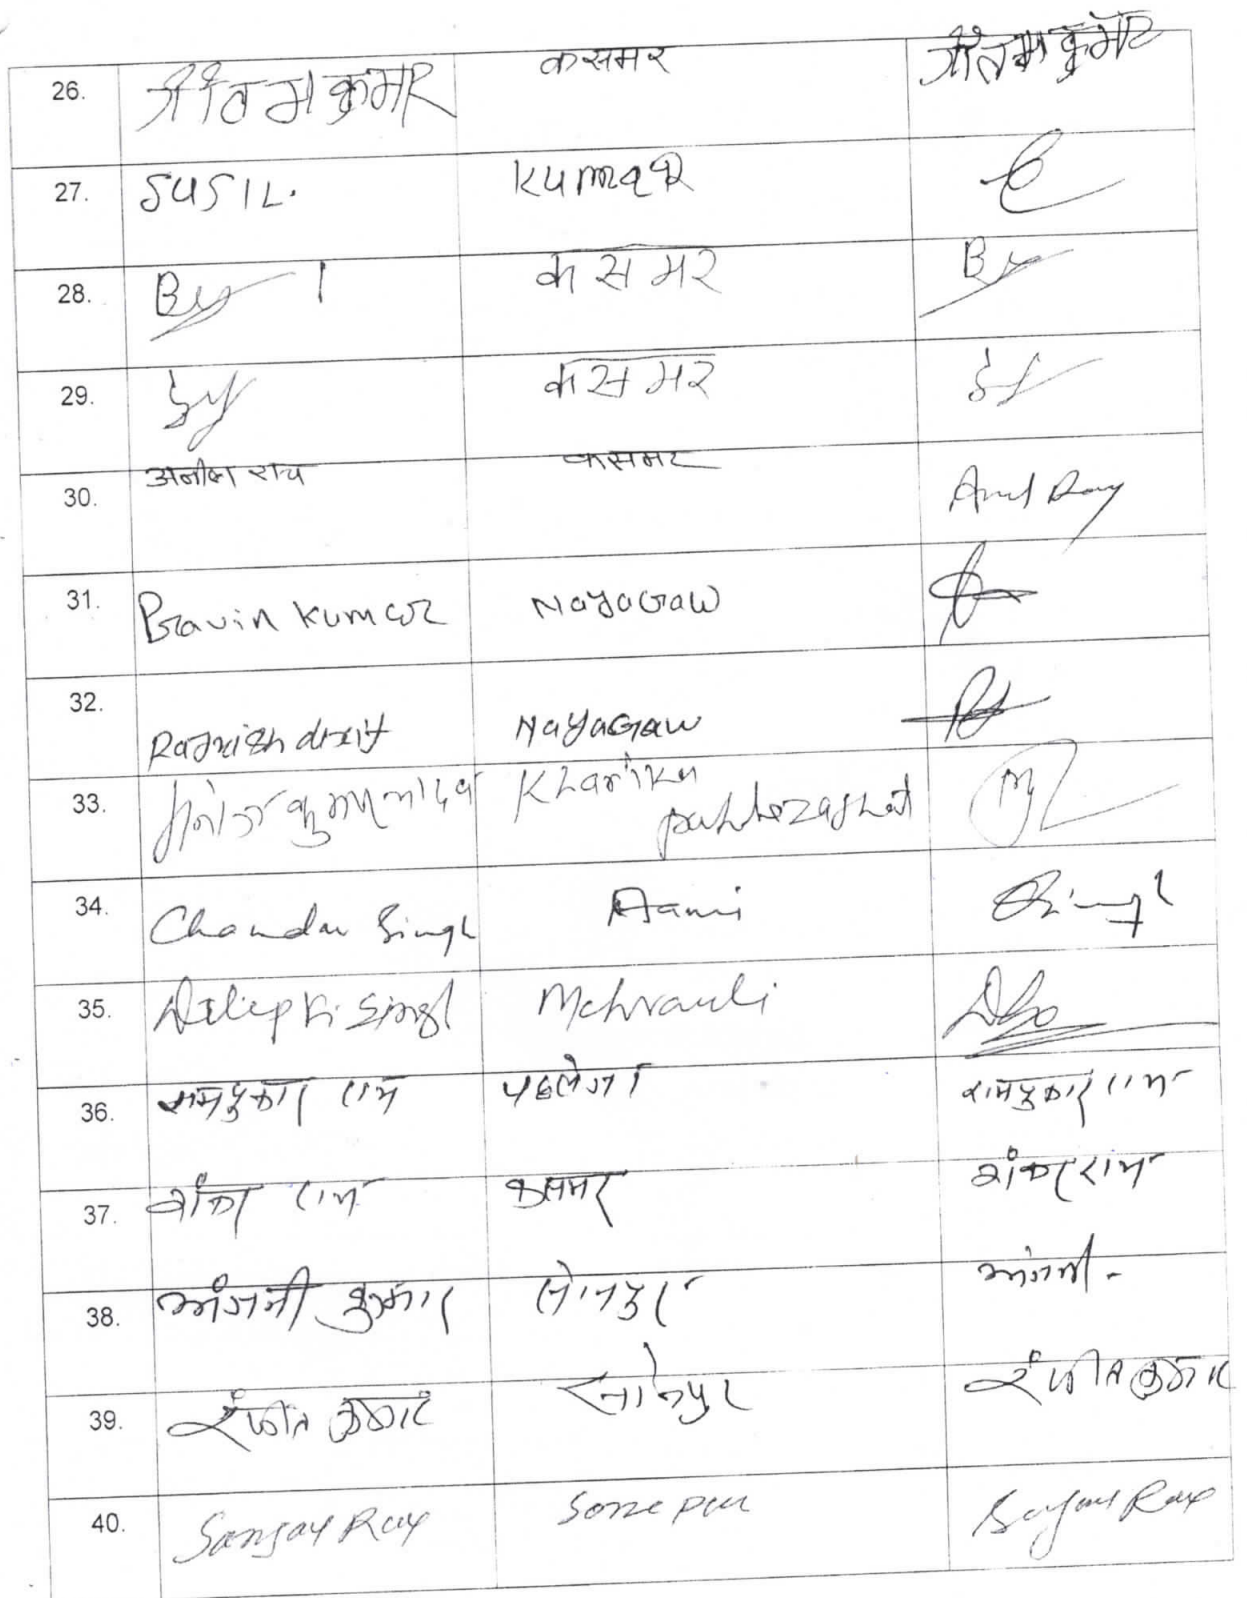 26. गौतम कुमार कसमर गौतम कुमार
27. SUSIL. KUMAR
28. कसमर
29. कसमर
30. अनील राय कसमर Anil Ray
31. Pravin Kumar NayaGaw
32. Rajnish dixit NayaGaw
33. Kharika
pahlezaghat
34. Chandan Singh Aami Singh
35. Dilip Kr Singh Mehrauli
36. रामपुकार राम पहलेजा रामपुकार राम
37. राम कसमर राम
38. अंजनी कुमार सोनपुर अंजनी -
39. रंजीत कुमार सोनपुर रंजीत कुमार
40. Sanjay Ray Sonepur Sanjay Ray